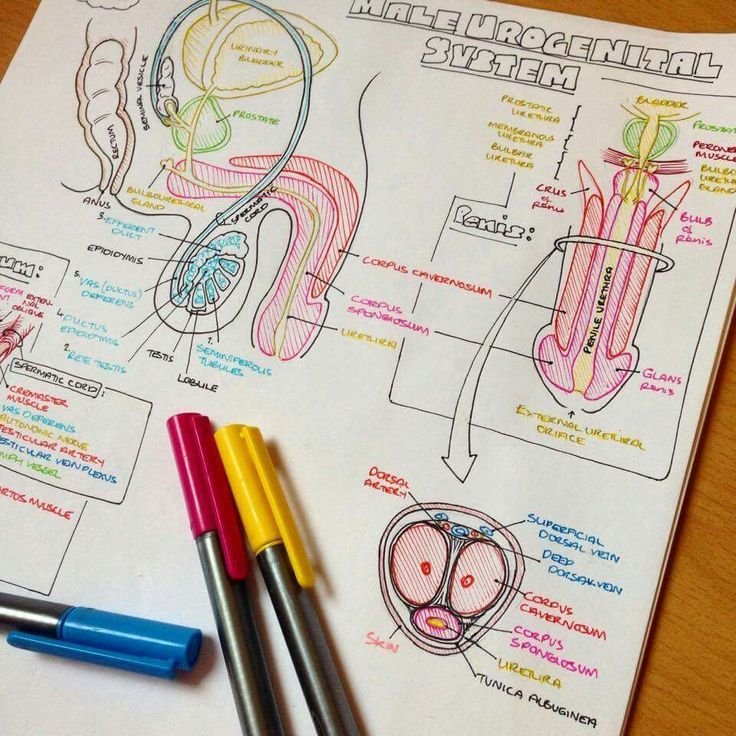 MALE UROGENITAL
SYSTEM
URINARY
BLADDER
SEMINAL VESICLE
PROSTATE
RECTUM
ANUS
BULBOURETHRAL
GLAND
SPERMATIC
CORD
3. EFFERENT
DUCT
EPIDIDYMIS
5. VAS (DUCTUS)
DEFERENS
4. DUCTUS
EPIDIDYMIS
2. RETE TESTIS
TESTIS
LOBULE
1. SEMINIFEROUS
TUBULES
CORPUS CAVERNOSUM
CORPUS
SPONGIOSUM
URETHRA
PROSTATIC
URETHRA
MEMBRANOUS
URETHRA
BULBAR
URETHRA
CRUS
OF
PENIS
PENIS:
BLADDER
MUSCLE
GLAND
BULB
OF
PENIS
PENILE URETHRA
GLANS
PENIS
EXTERNAL URETHRAL
ORIFICE
OBLIQUE
SPERMATIC CORD:
CREMASTER
MUSCLE
VAS DEFERENS
AUTONOMIC NERVE
VESSEL
MUSCLE
DORSAL
ARTERY
SUPERFICIAL
DORSAL VEIN
DEEP
DORSAL VEIN
CORPUS
CAVERNOSUM
CORPUS
SPONGIOSUM
URETHRA
TUNICA ALBUGINEA
SKIN